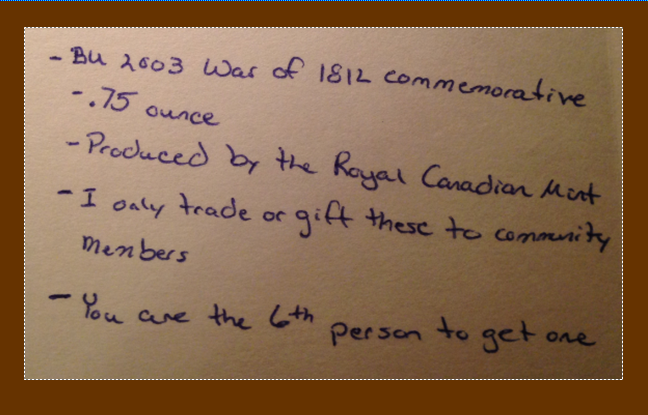 - BU 2003 War of 1812 commemorative
- .75 ounce
- Produced by the Royal Canadian Mint
- I only trade or gift these to community
members
- You are the 6th person to get one